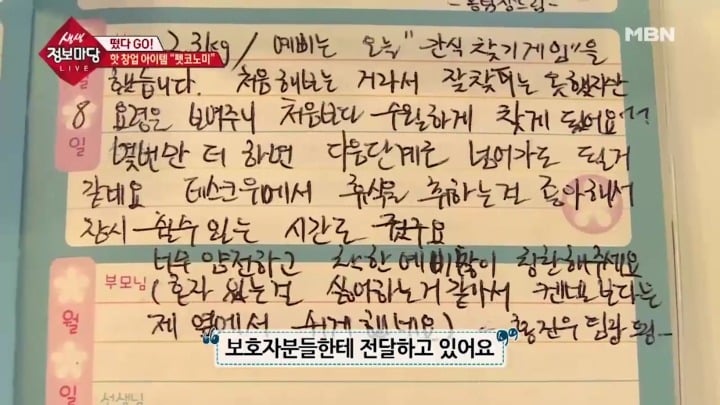 ...홍팀장드림-
MBN
생생 정보마당 LIVE
떴다 GO!
핫 창업 아이템 "펫코노미"
2.3kg / 예삐는 오늘 "간식 찾기게임"을
했습니다. 처음해보는 거라서 잘찾지는 못했지만
8 요령을 보여주니 처음보다 수월하게 찾게 되었어요^^
일 몇번만 더 하면 다음단계로 넘어가도 될거
같네요 데스크위에서 휴식을 취하는걸 좋아해서
잠시 쉴수있는 시간도 줬구요
너무 얌전하고 착한예삐 많이 칭찬해주세요
부모님 (혼자 있는걸 싫어하는거 같아서 켄넬보다는
월 제 옆에서 쉬게 했네요) - 홍진우 팀장 드림-
보호자분들한테 전달하고 있어요
일
선생님